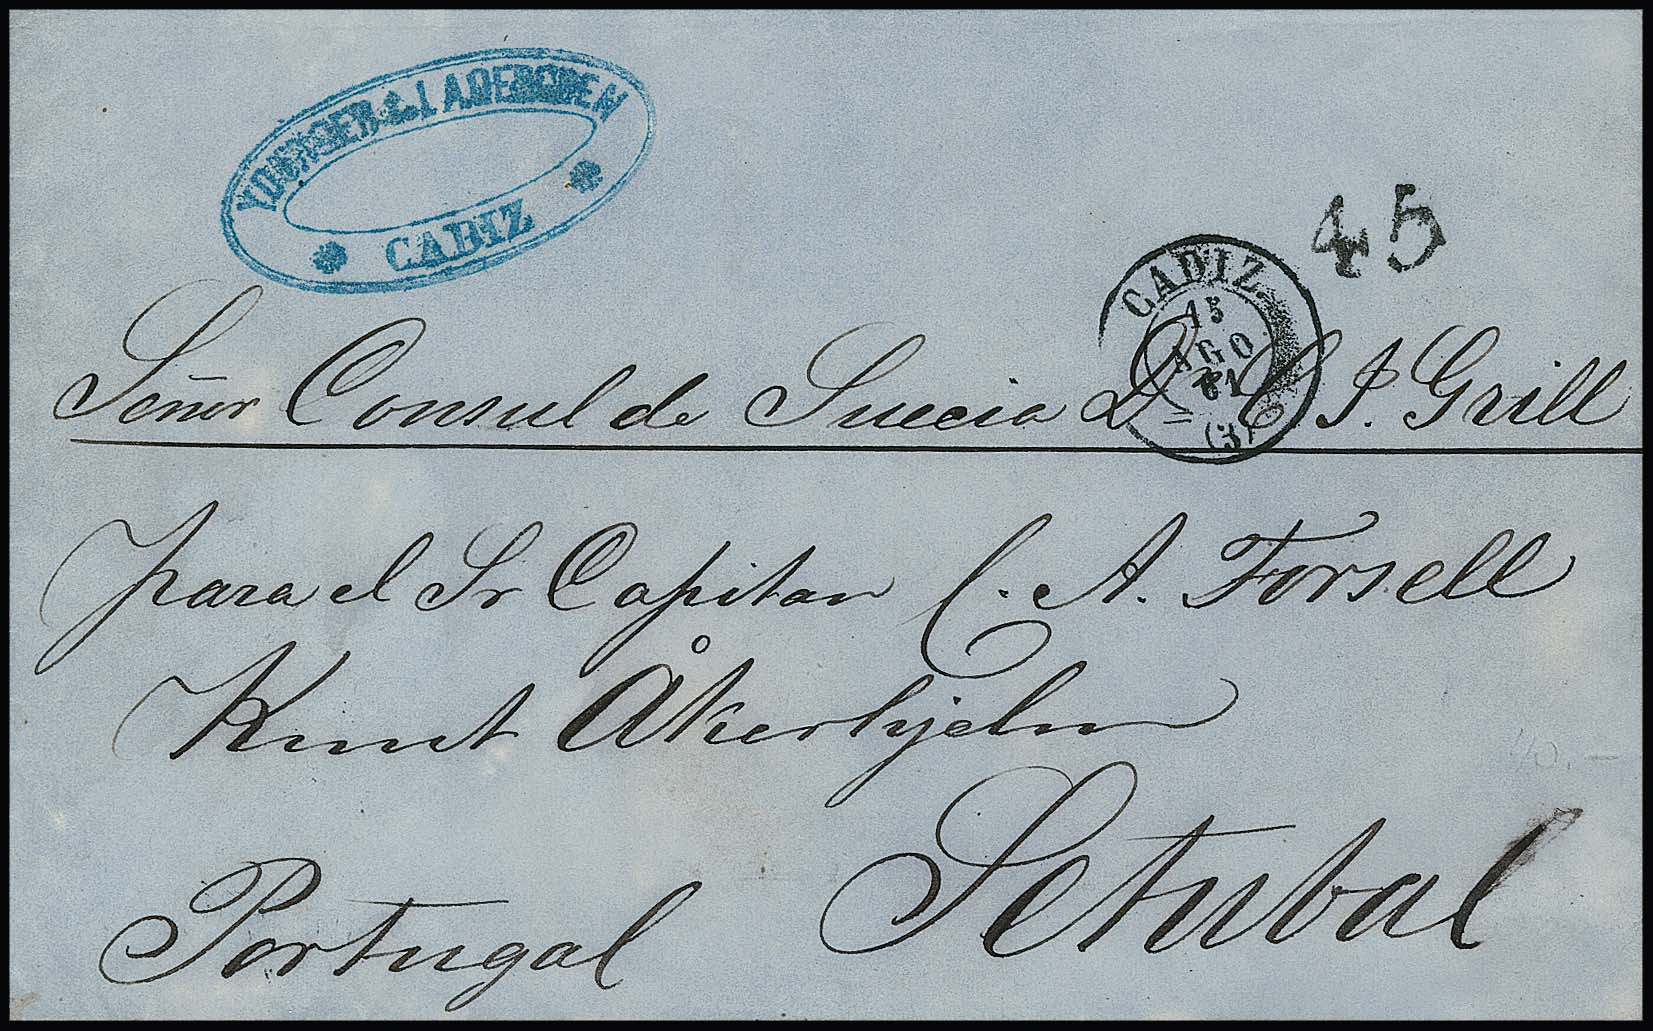 YOUNGER & LADEBODEN
CADIZ
45
CADIZ.
15
AGO
61
(3)
Señor Consul de Suecia Dn C. P. Grill
para el Sr Capitan C. A. Forsell
Knut Åkerhjelm
Setubal
Portugal
40.-